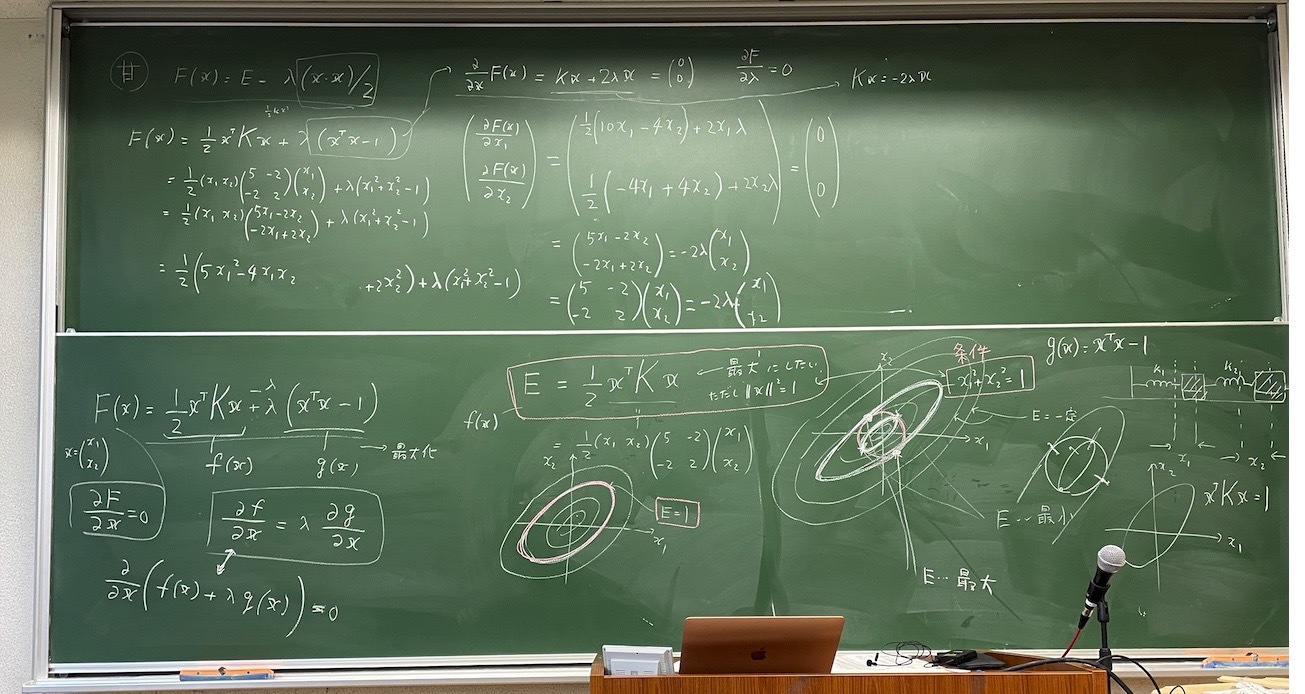 廿 F(x) = E - λ(x·x)/2
F(x) = 1/2 xᵀKx + λ(xᵀx-1)
= 1/2 (x₁ x₂)(5 -2 / -2 2)(x₁ / x₂) + λ(x₁²+x₂²-1)
= 1/2 (x₁ x₂)(5x₁-2x₂ / -2x₁+2x₂) + λ(x₁²+x₂²-1)
= 1/2 (5x₁²-4x₁x₂ +2x₂²) + λ(x₁²+x₂²-1)
∂/∂x F(x) = Kx + 2λx = (0 / 0) ∂F/∂λ = 0 Kx = -2λx
(∂F(x)/∂x₁ / ∂F(x)/∂x₂) = (1/2(10x₁ - 4x₂) + 2x₁λ / 1/2(-4x₁ + 4x₂) + 2x₂λ) = (0 / 0)
= (5x₁-2x₂ / -2x₁+2x₂) = -2λ(x₁ / x₂)
= (5 -2 / -2 2)(x₁ / x₂) = -2λ(x₁ / x₂)
F(x) = 1/2 xᵀKx + λ(xᵀx-1)
-λ
f(x) g(x) → 最大化
x=(x₁ / x₂)
∂F/∂x = 0
∂f/∂x = λ ∂g/∂x
∂/∂x (f(x) + λg(x)) = 0
E = 1/2 xᵀKx ← 最大にしたい
ただし ||x||²=1
f(x)
= 1/2 (x₁ x₂)(5 -2 / -2 2)(x₁ / x₂)
x₂
x₁
E=1
x₂
x₁
条件
x₁²+x₂²=1
E=一定
E…最小
E…最大
g(x) = xᵀx-1
k₁ k₂
x₁ x₂
x₂
x₁
xᵀKx=1